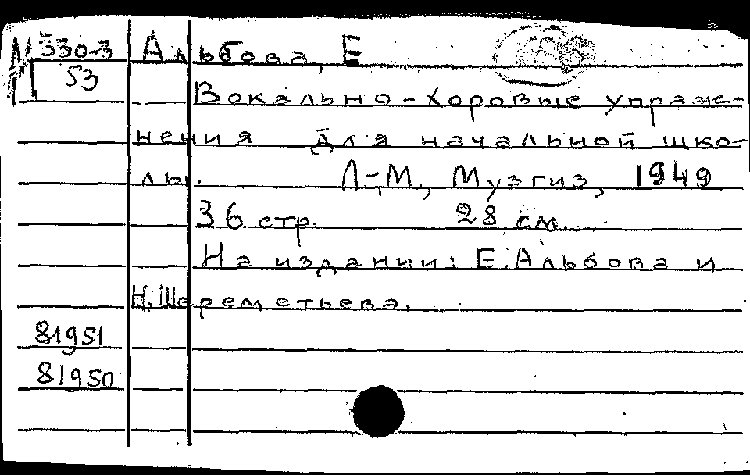 М 330-3 Альбова, Е
53
Вокально-хоровые упраж-
нения для начальной шко-
лы. Л-М, Музгиз, 1949
36 стр. 28 см.
На издании: Е. Альбова и
Н. Шереметьева.
81951
81950